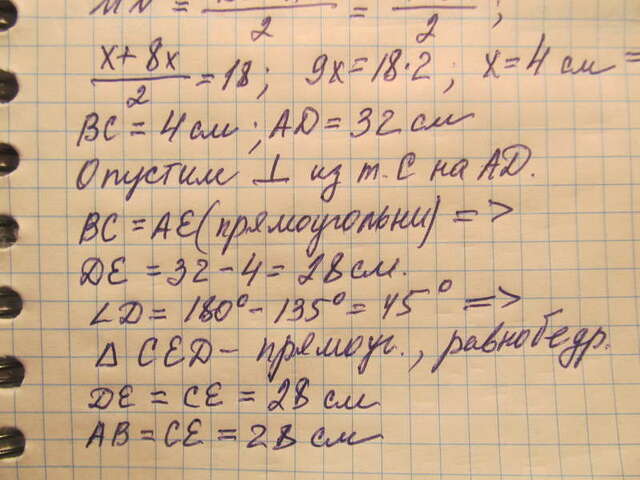 MN = / 2 = / 2 ;
x + 8x / 2 = 18; 9x = 18·2; x = 4 см =
BC = 4 см; AD = 32 см
Опустим ⊥ из т. C на AD.
BC = AE (прямоугольни) =>
DE = 32 - 4 = 28 см.
∠D = 180° - 135° = 45° =>
△ CED - прямоуг., равнобедр.
DE = CE = 28 см
AB = CE = 28 см